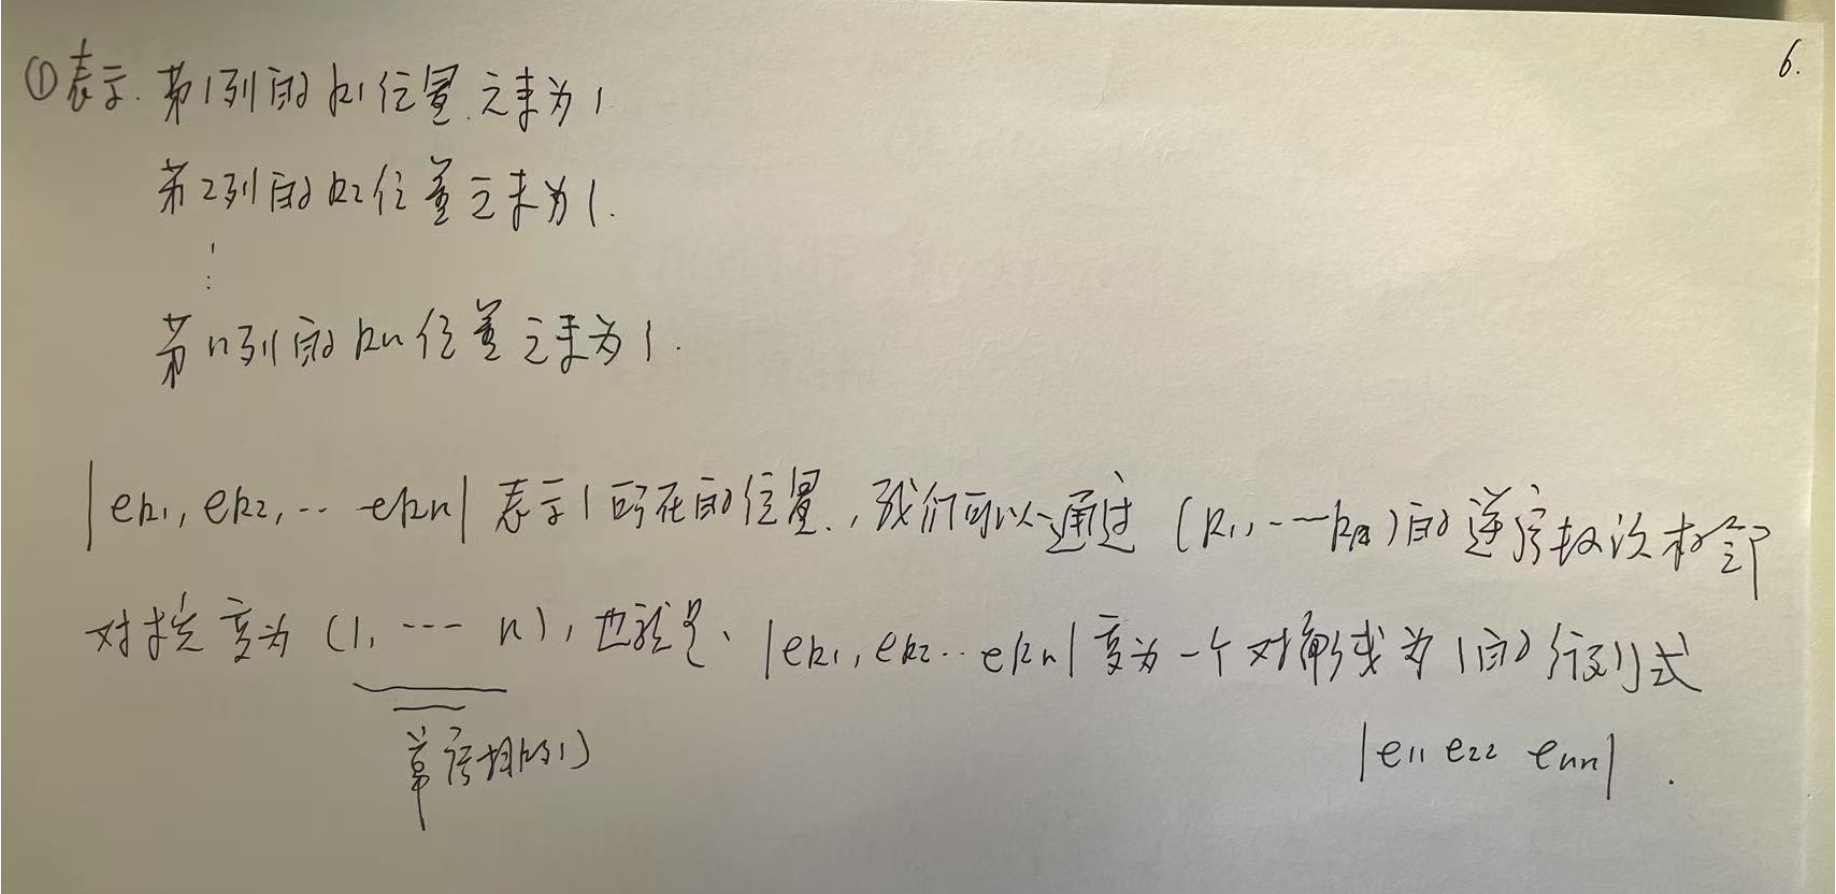 6.
①表示. 第1列的k1位置元素为1
第2列的k2位置元素为1.
⋮
第n列的kn位置元素为1.
|ek1, ek2, ··· ekn| 表示1所在的位置., 我们可以通过 (k1, ··· kn)的逆序数次相邻
对换变为 (1, ··· n), 也就是、|ek1, ek2 ·· ekn| 变为一个对角线为1的行列式
排列
|e11 e22 enn| .